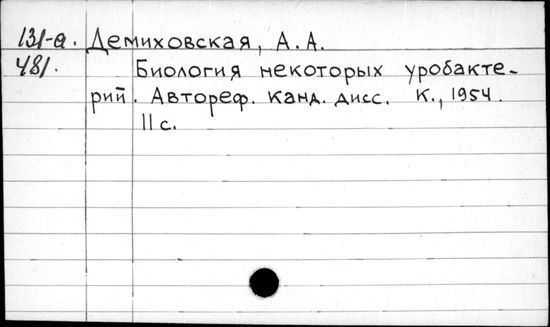 131-а. Демиховская, А.А.
481. Биология некоторых уробакте-
рий. Автореф. канд. дисс. К., 1954.
11 с.